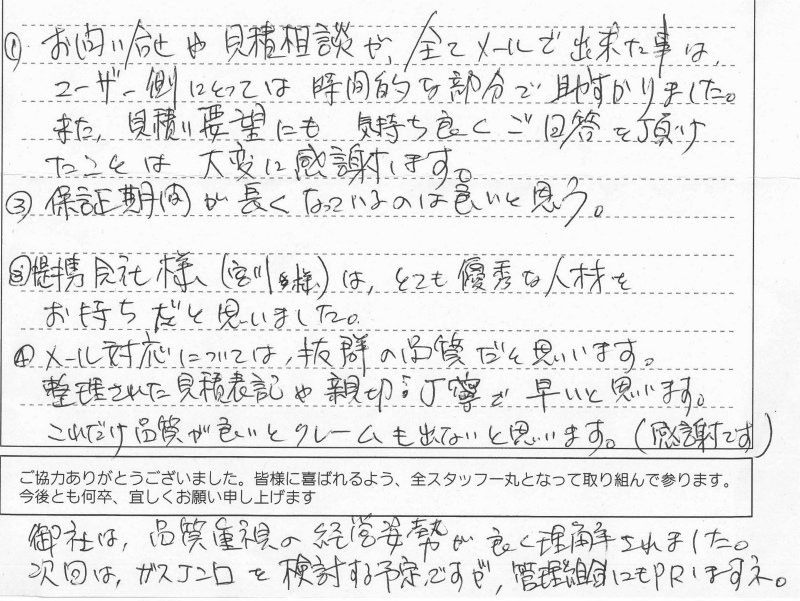 ① お問い合せや見積相談が、全てメールで出来た事は、
ユーザー側にとっては時間的な部分で助すかりました。
また、見積り要望にも気持ち良くご回答を頂け
たことは大変に感謝します。
③ 保証期間が長くなっているのは良いと思う。
②提携会社様、(宮川様)は、とても優秀な人材を
お持ちだと思いました。
④ メール対応については、抜群の品質だと思います。
整理された見積表記や親切・丁寧で早いと思います。
これだけ品質が良いとクレームも出ないと思います。(感謝です)
ご協力ありがとうございました。皆様に喜ばれるよう、全スタッフ一丸となって取り組んで参ります。
今後とも何卒、宜しくお願い申し上げます
御社は、品質重視の経営姿勢が良く理解されました。
次回は、ガスコンロを検討する予定ですが、管理組合にもPRしますネ。